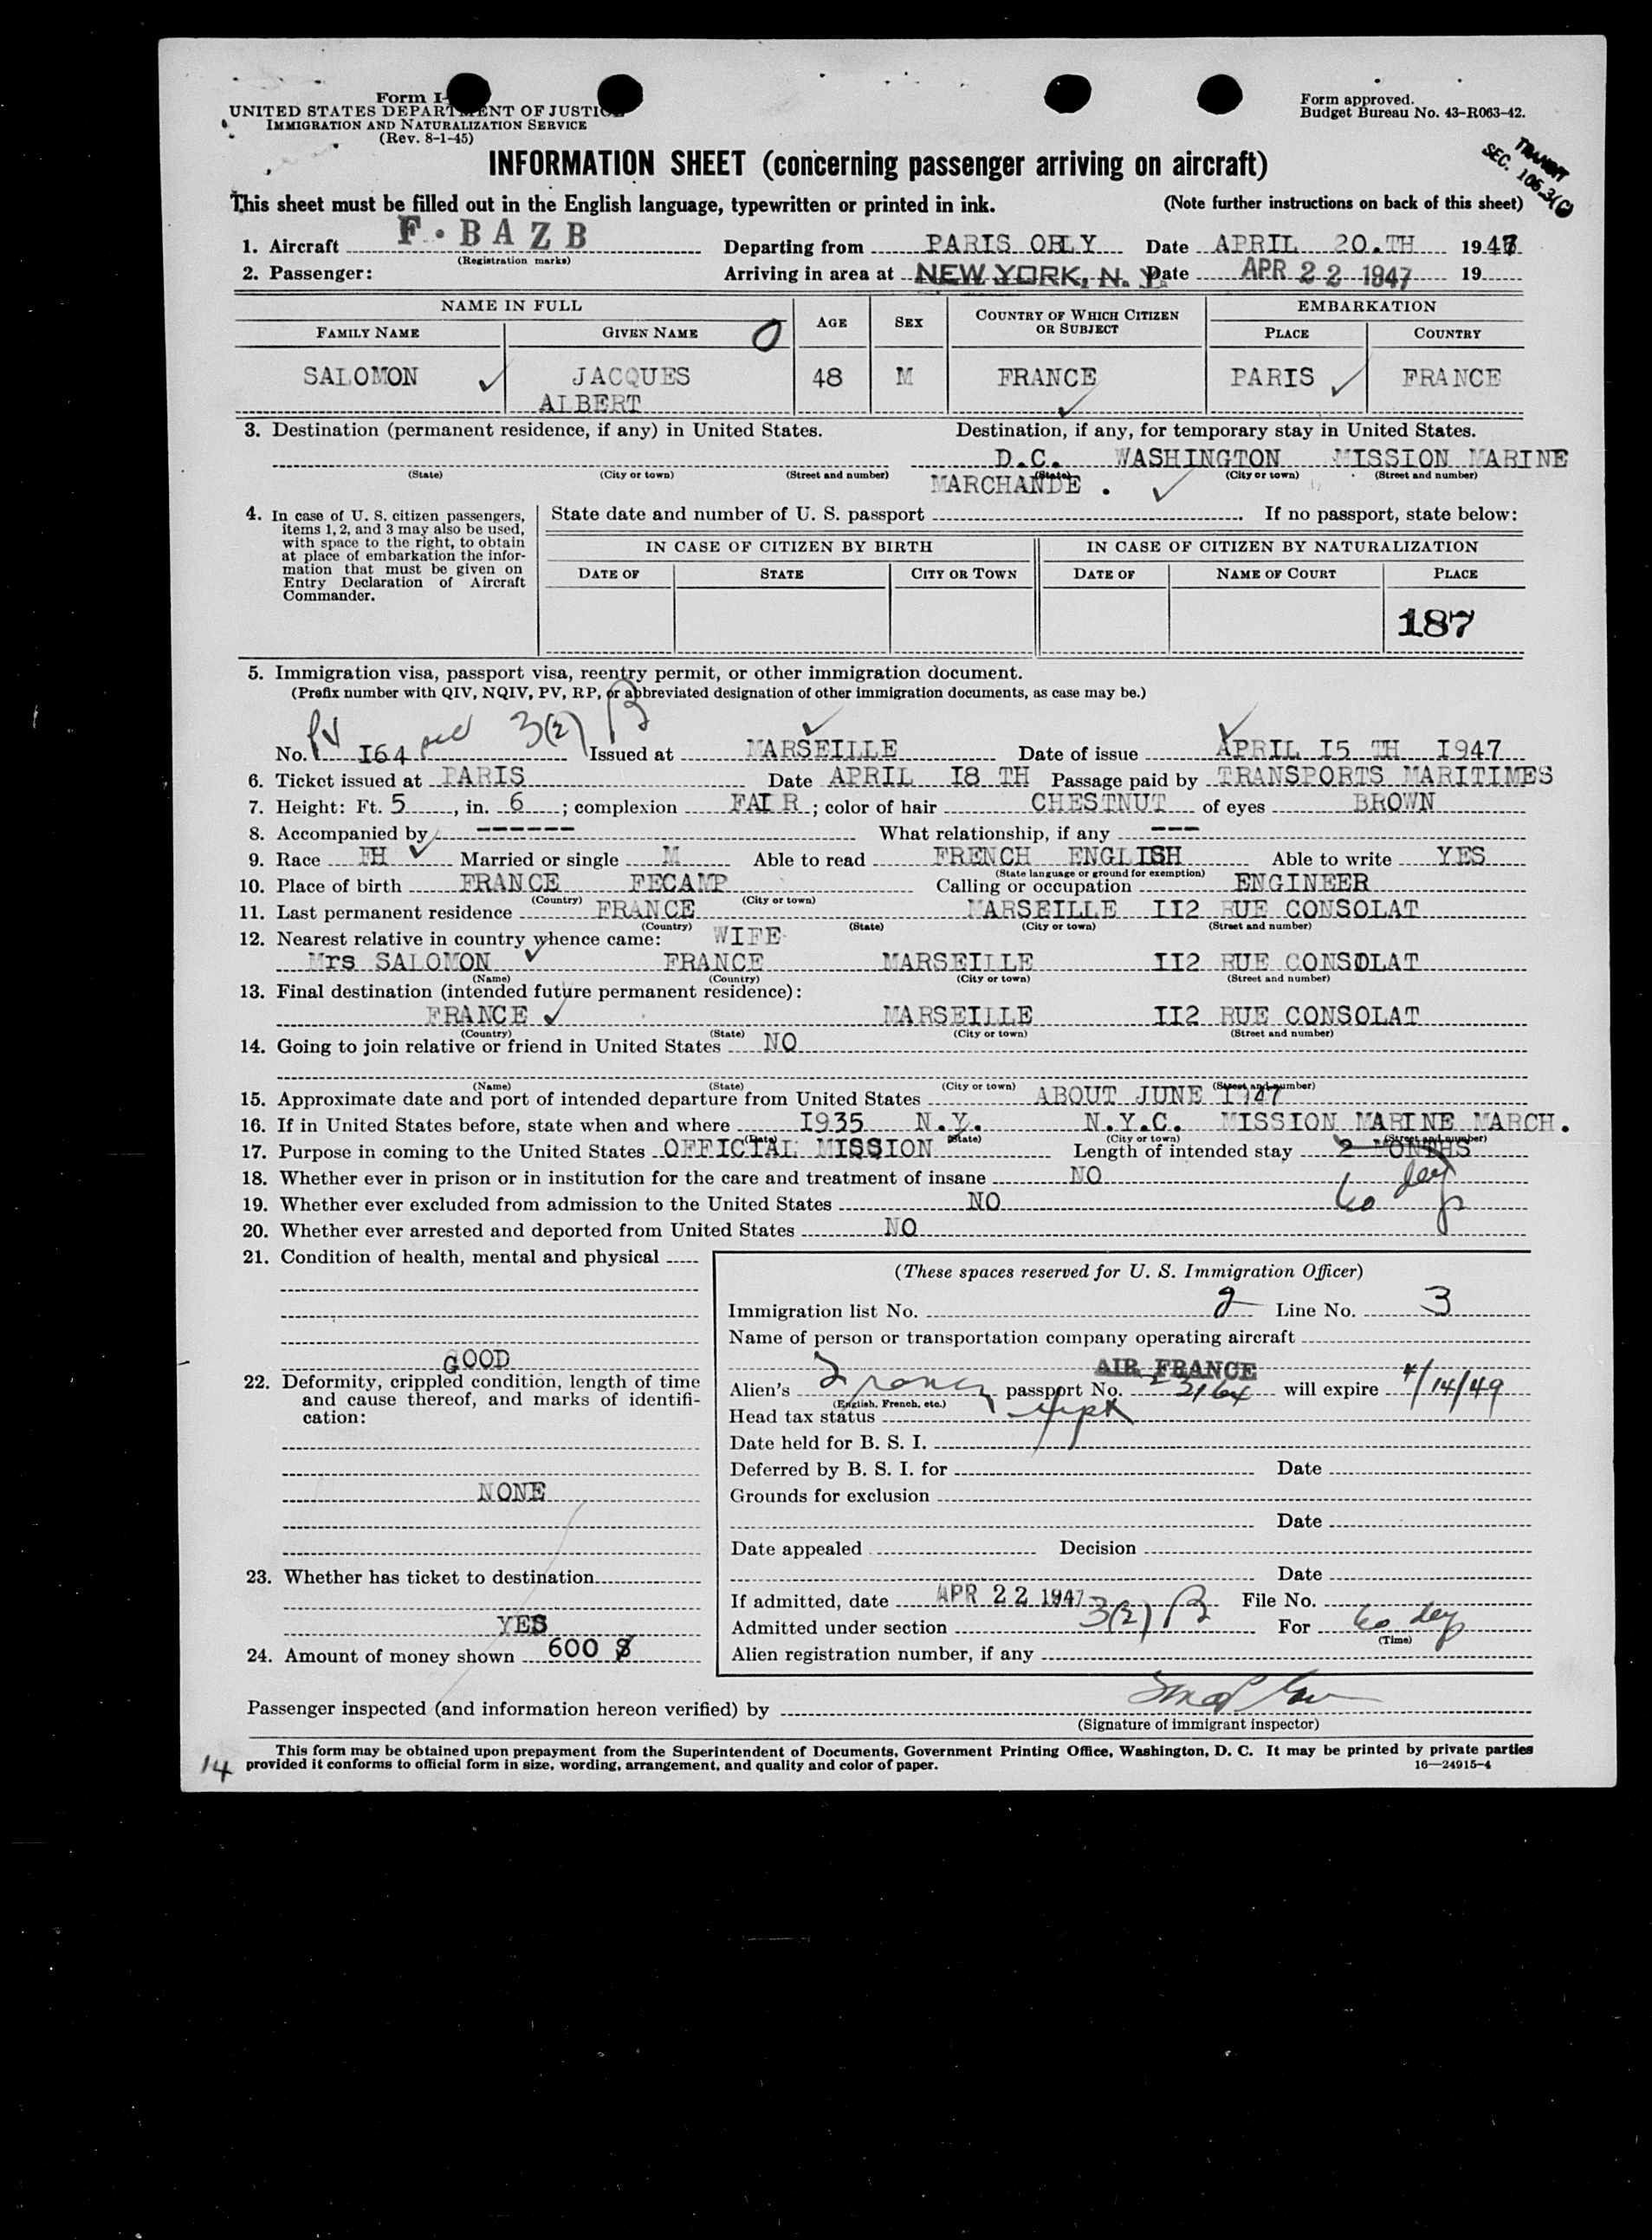 Form I-
UNITED STATES DEPARTMENT OF JUSTICE
IMMIGRATION AND NATURALIZATION SERVICE
(Rev. 8-1-45)
Form approved.
Budget Bureau No. 43-R063-42.
INFORMATION SHEET (concerning passenger arriving on aircraft)
TRANSIT
SEC. 106.3(C)
This sheet must be filled out in the English language, typewritten or printed in ink. (Note further instructions on back of this sheet)
1. Aircraft F·BAZB Departing from PARIS ORLY Date APRIL 20.TH 1947
(Registration marks)
2. Passenger: Arriving in area at NEW YORK, N. Y. Date APR 22 1947 19
NAME IN FULL AGE SEX COUNTRY OF WHICH CITIZEN OR SUBJECT EMBARKATION
FAMILY NAME GIVEN NAME PLACE COUNTRY
SALOMON JACQUES 48 M FRANCE PARIS FRANCE
ALBERT
3. Destination (permanent residence, if any) in United States. Destination, if any, for temporary stay in United States.
D.C. WASHINGTON MISSION MARINE
(State) (City or town) (Street and number) (State) (City or town) (Street and number)
MARCHANDE .
4. In case of U. S. citizen passengers, items 1, 2, and 3 may also be used, with space to the right, to obtain at place of embarkation the information that must be given on Entry Declaration of Aircraft Commander.
State date and number of U. S. passport If no passport, state below:
IN CASE OF CITIZEN BY BIRTH IN CASE OF CITIZEN BY NATURALIZATION
DATE OF STATE CITY OR TOWN DATE OF NAME OF COURT PLACE
187
5. Immigration visa, passport visa, reentry permit, or other immigration document.
(Prefix number with QIV, NQIV, PV, RP, or abbreviated designation of other immigration documents, as case may be.)
No. PV I64 3(2) Issued at MARSEILLE Date of issue APRIL I5 TH I947
6. Ticket issued at PARIS Date APRIL I8 TH Passage paid by TRANSPORTS MARITIMES
7. Height: Ft. 5, in. 6; complexion FAIR; color of hair CHESTNUT of eyes BROWN
8. Accompanied by ------ What relationship, if any ---
9. Race FH Married or single M Able to read FRENCH ENGLISH Able to write YES
(State language or ground for exemption)
10. Place of birth FRANCE FECAMP Calling or occupation ENGINEER
(Country) (City or town)
11. Last permanent residence FRANCE MARSEILLE II2 RUE CONSOLAT
(Country) (State) (City or town) (Street and number)
12. Nearest relative in country whence came: WIFE
Mrs SALOMON FRANCE MARSEILLE II2 RUE CONSOLAT
(Name) (Country) (City or town) (Street and number)
13. Final destination (intended future permanent residence):
FRANCE MARSEILLE II2 RUE CONSOLAT
(Country) (State) (City or town) (Street and number)
14. Going to join relative or friend in United States NO
(Name) (State) (City or town) (Street and number)
15. Approximate date and port of intended departure from United States ABOUT JUNE I947
16. If in United States before, state when and where I935 N.Y. N.Y.C. MISSION MARINE MARCH.
(Date) (State) (City or town) (Street and number)
17. Purpose in coming to the United States OFFICIAL MISSION Length of intended stay 2 MONTHS
60 days
18. Whether ever in prison or in institution for the care and treatment of insane NO
19. Whether ever excluded from admission to the United States NO
20. Whether ever arrested and deported from United States NO
21. Condition of health, mental and physical
GOOD
22. Deformity, crippled condition, length of time and cause thereof, and marks of identification:
NONE
23. Whether has ticket to destination
YES
24. Amount of money shown 600 $
(These spaces reserved for U. S. Immigration Officer)
Immigration list No. 2 Line No. 3
Name of person or transportation company operating aircraft
AIR FRANCE
Alien's French passport No. will expire 4/14/49
(English, French, etc.)
Head tax status
Date held for B. S. I.
Deferred by B. S. I. for Date
Grounds for exclusion
Date
Date appealed Decision
Date
If admitted, date APR 22 1947 File No.
Admitted under section 3(2) For 60 days
(Time)
Alien registration number, if any
Passenger inspected (and information hereon verified) by
(Signature of immigrant inspector)
This form may be obtained upon prepayment from the Superintendent of Documents, Government Printing Office, Washington, D. C. It may be printed by private parties
provided it conforms to official form in size, wording, arrangement, and quality and color of paper. 16—24915-4
14